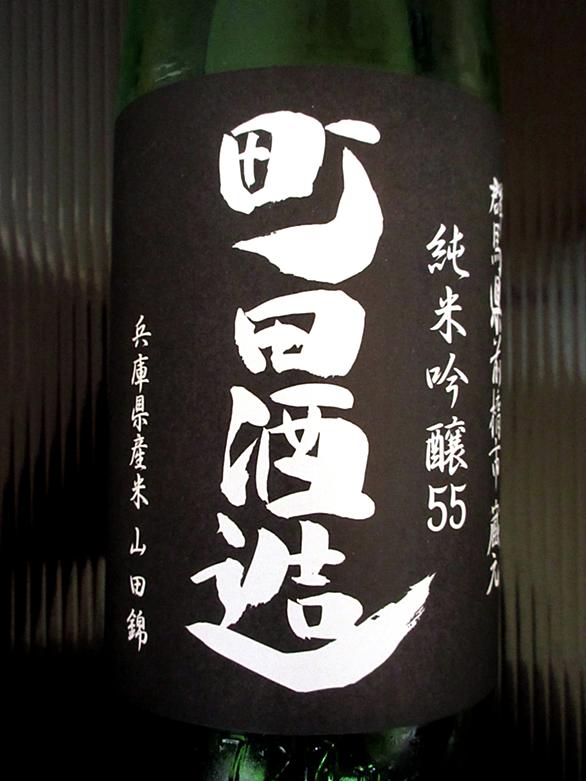 群馬県前橋市 蔵元
純米吟醸55
町田酒造
兵庫県産米 山田錦